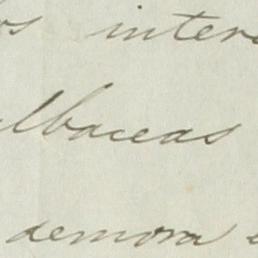 os inter
lbaceas
demora e